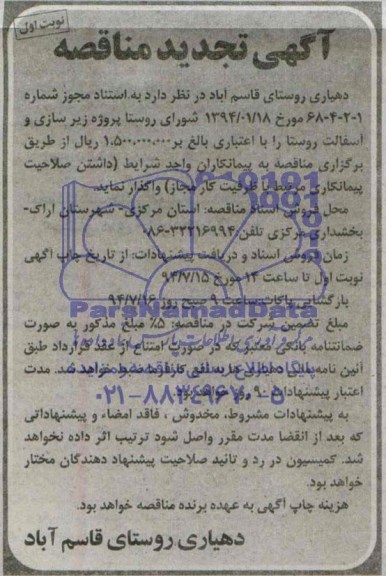 نوبت اول
آگهی تجدید مناقصه
دهیاری روستای قاسم آباد در نظر دارد به استناد مجوز شماره
۶۸-۴-۲-۱ مورخ ۱۳۹۴/۰۱/۱۸ شورای روستا پروژه زیر سازی و
آسفالت روستا را با اعتباری بالغ بر ۱,۵۰۰,۰۰۰,۰۰۰ ریال از طریق
برگزاری مناقصه به پیمانکاران واجد شرایط (داشتن صلاحیت
پیمانکاری مرتبط با ظرفیت کار مجاز) واگذار نماید.
محل فروش اسناد مناقصه: استان مرکزی- شهرستان اراک-
بخشداری مرکزی تلفن ۳۲۲۱۶۹۹۴-۰۸۶
زمان فروش اسناد و دریافت پیشنهادات: از تاریخ چاپ آگهی
نوبت اول تا ساعت ۱۴ مورخ ۹۴/۷/۱۵
بازگشایی پاکات ساعت ۹ صبح روز ۹۴/۷/۱۶
ParsNamadData
مبلغ تضمین شرکت در مناقصه: ۵٪ مبلغ مذکور به صورت
ضمانتنامه بانکی معتبر که در صورت امتناع از عقد قرارداد طبق
آئین نامه مالی دهیاری ها به نفع کارفرما ضبط خواهد شد. مدت
اعتبار پیشنهادات ۹۰ روز خواهد بود.
۰۲۱-۸۸۳۴۹۶۷۰-۵
به پیشنهادات مشروط، مخدوش ، فاقد امضاء و پیشنهاداتی
که بعد از انقضا مدت مقرر واصل شود ترتیب اثر داده نخواهد
شد. کمیسیون در رد و تائید صلاحیت پیشنهاد دهندگان مختار
خواهد بود.
هزینه چاپ آگهی به عهده برنده مناقصه خواهد بود.
دهیاری روستای قاسم آباد